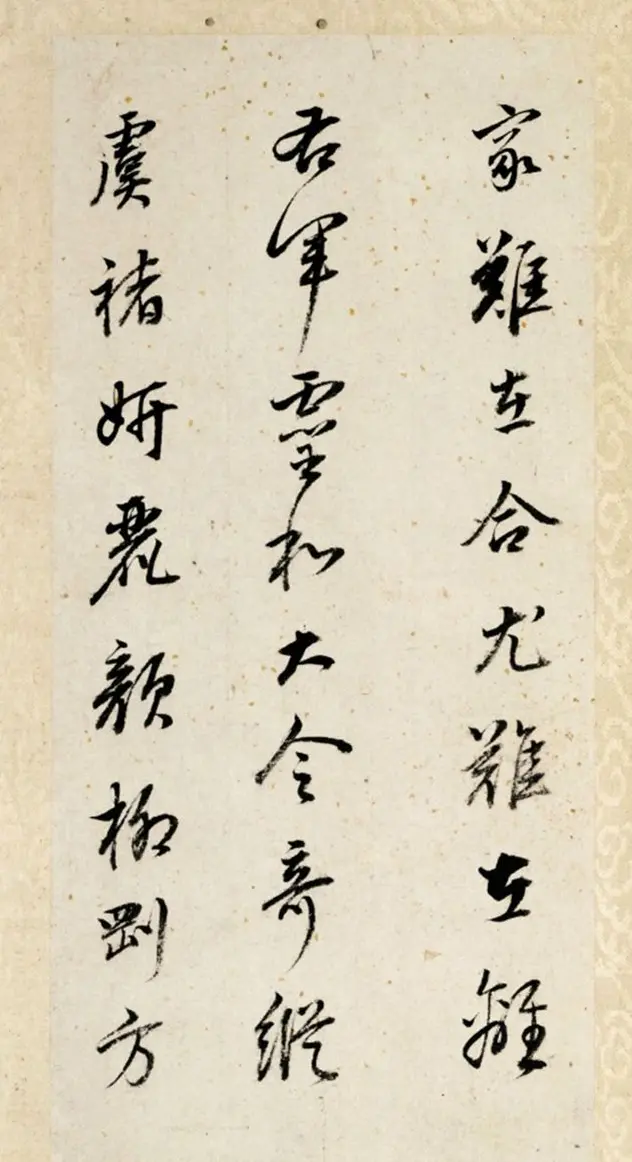 家難在合尤難在離
右軍靈和大令奇縱
虞褚妍麗顏柳剛方